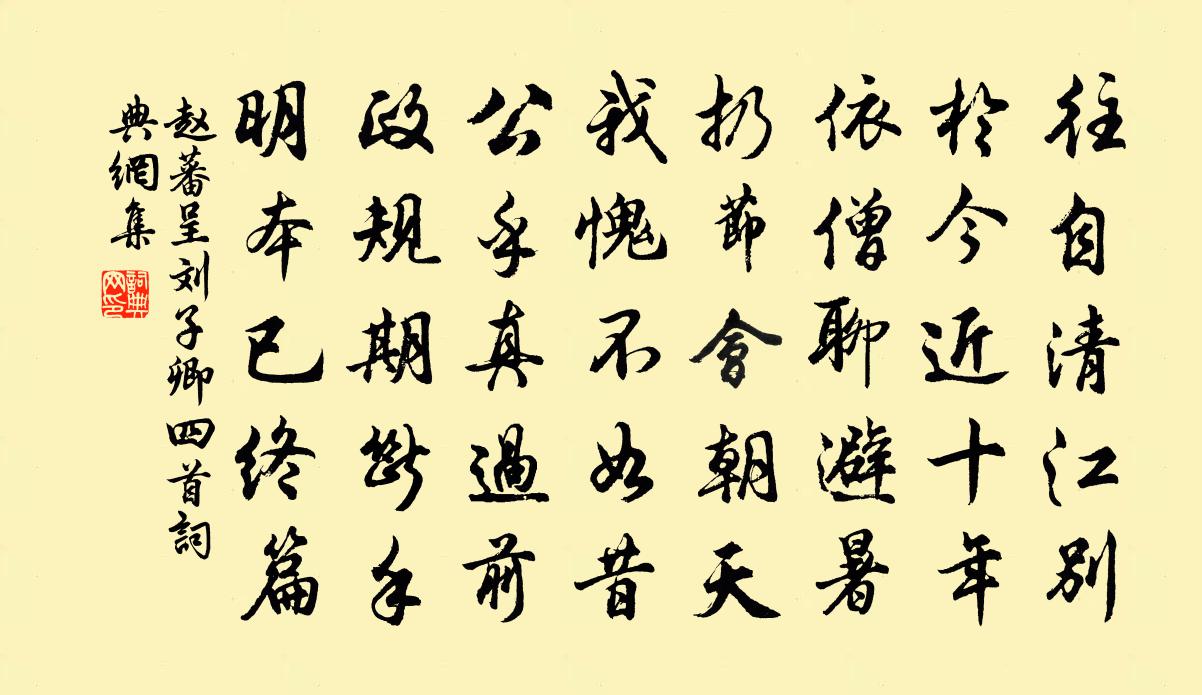 往自清江别
於今近十年
依僧聊避暑
扔節會朝天
我愧不如昔
公乎真過前
政規期斷手
明本已終篇
赵蕃呈刘子卿四首詞
典網集
詞典
网印